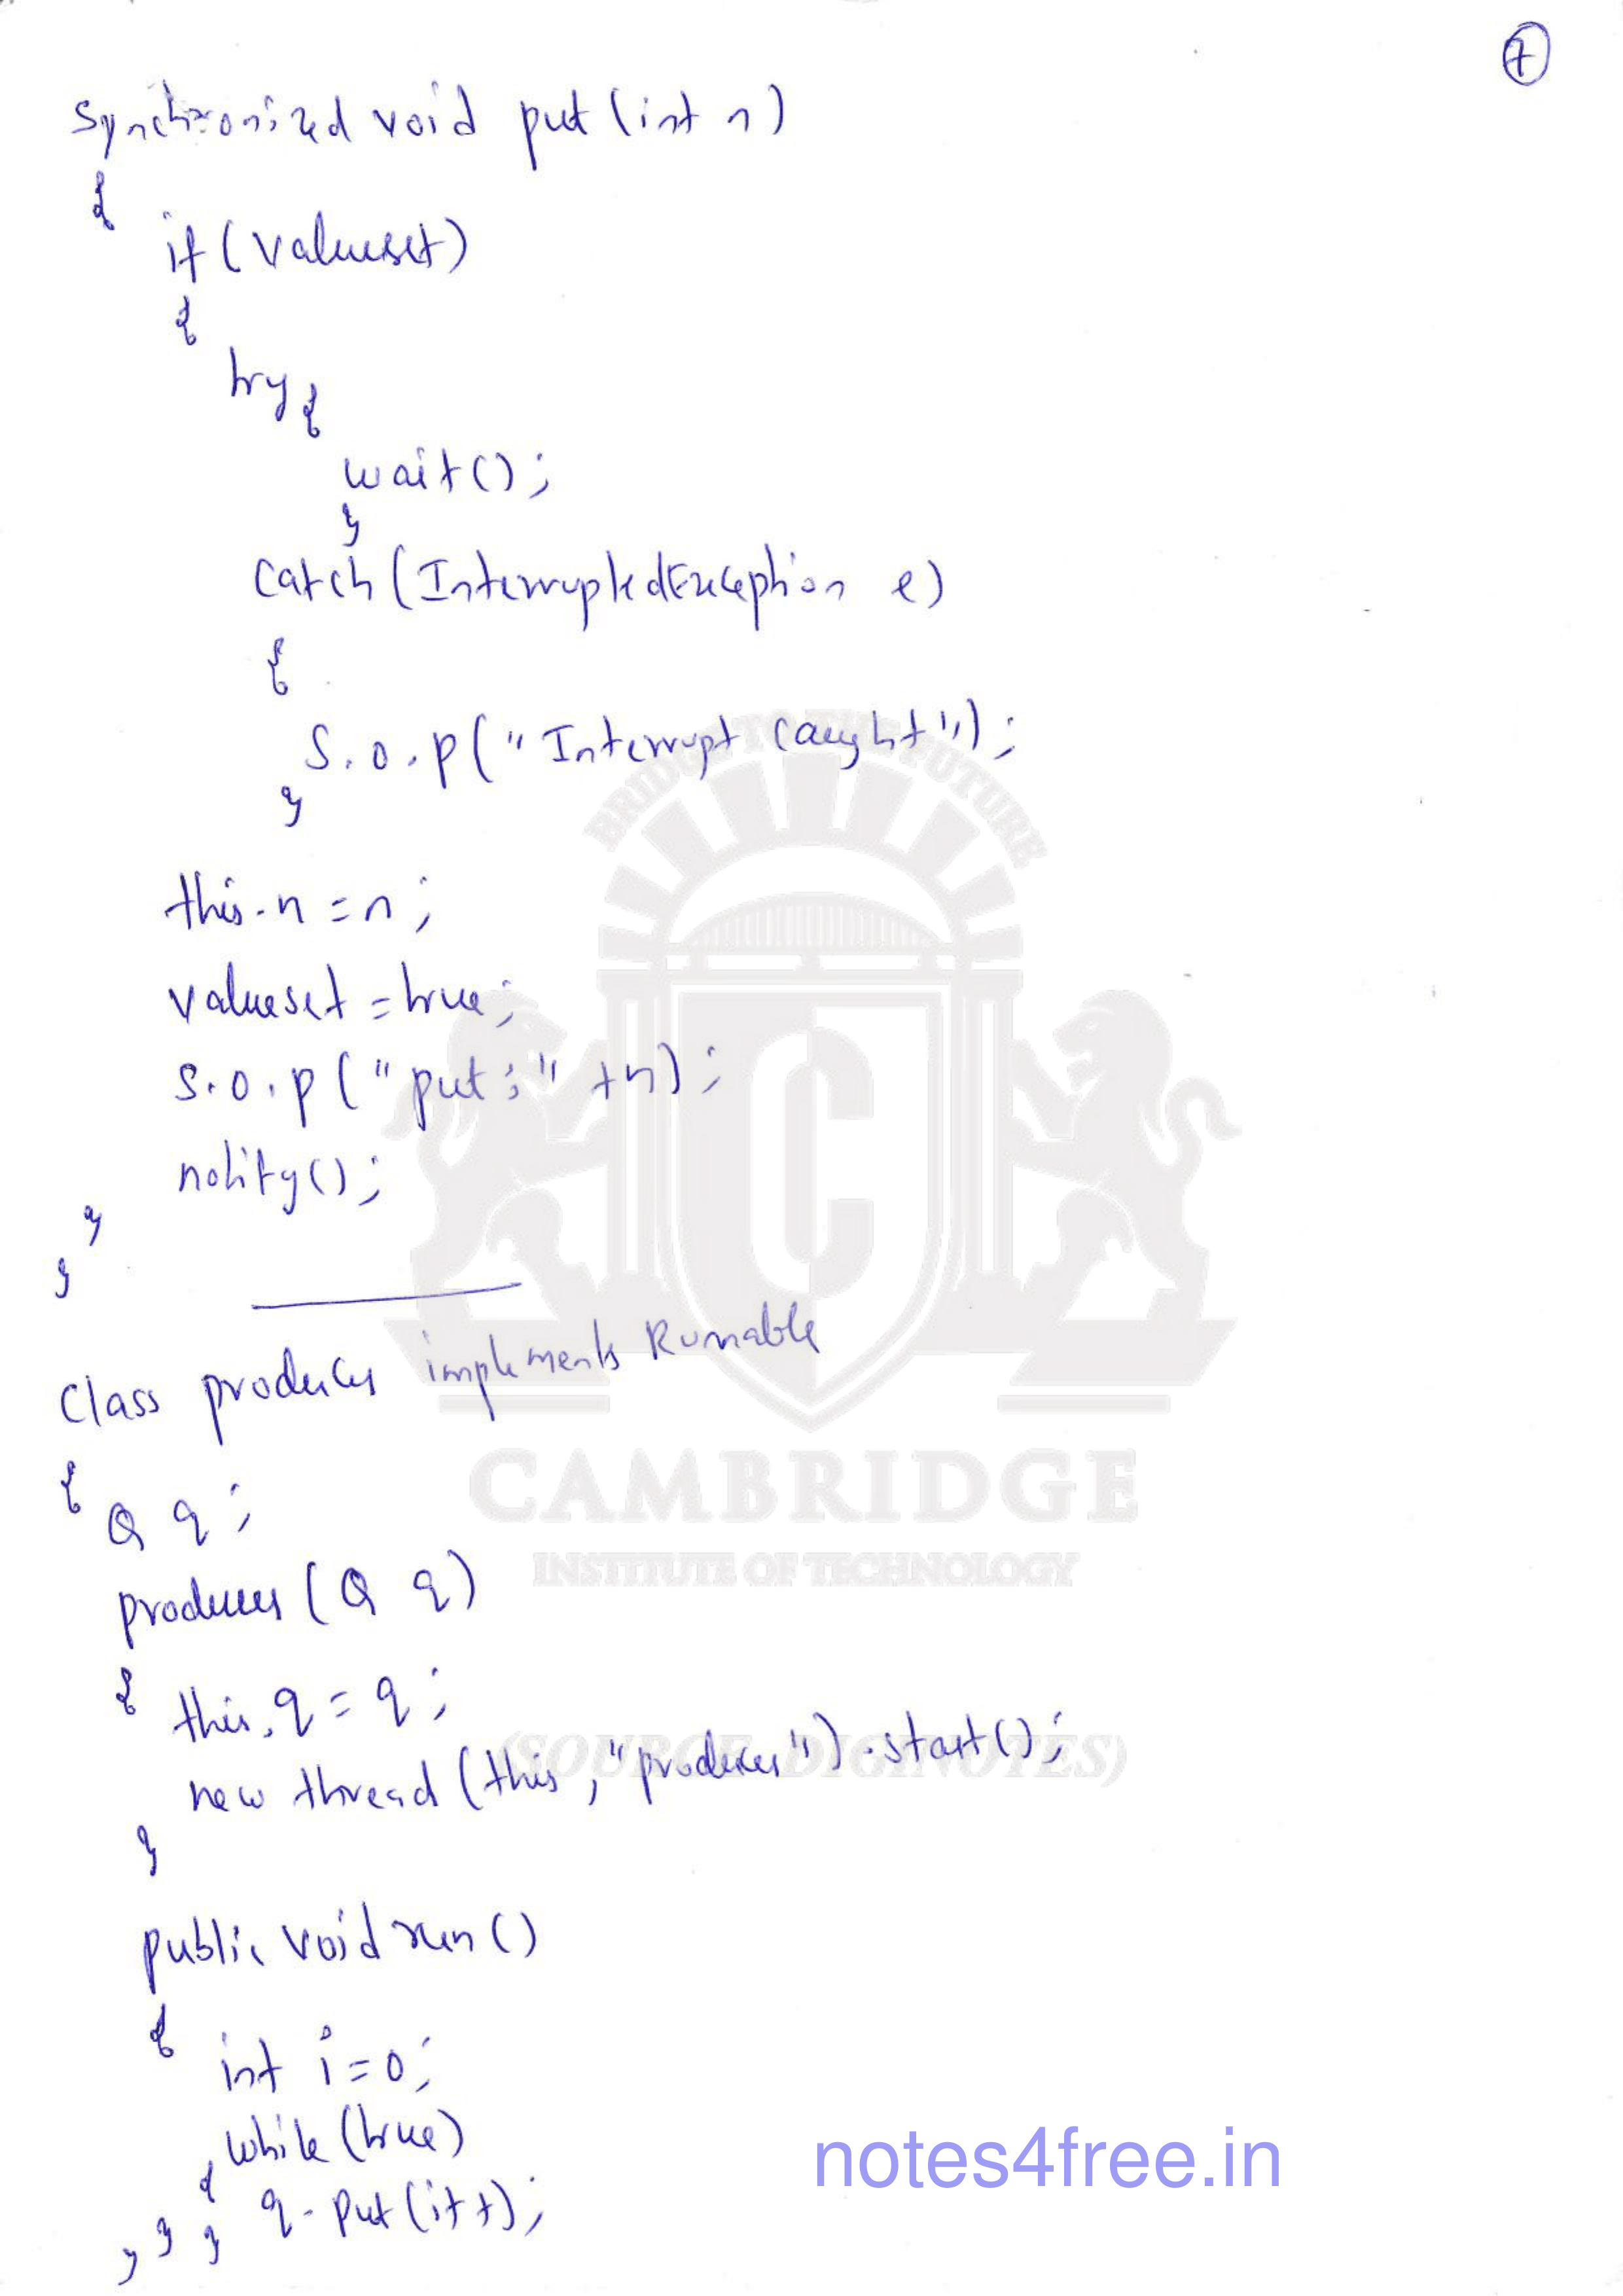 7
Synchronized void put (int n)
{
if (valueset)
{
try {
wait();
}
catch (InterruptedException e)
{
S.o.p("Interrupt Caught");
}
this.n = n;
valueset = true;
S.o.p("put:" +n);
notify();
}
}
Class producer implements Runnable
{
Q q;
producer (Q q)
{
this.q = q;
new thread (this, "producer").start();
}
public void run()
{
int i=0;
while (true)
{
q.put(i++);
} } }
BRIDGE TO THE FUTURE
C
CAMBRIDGE
INSTITUTE OF TECHNOLOGY
(SOURCE DIGINOTES)
notes4free.in